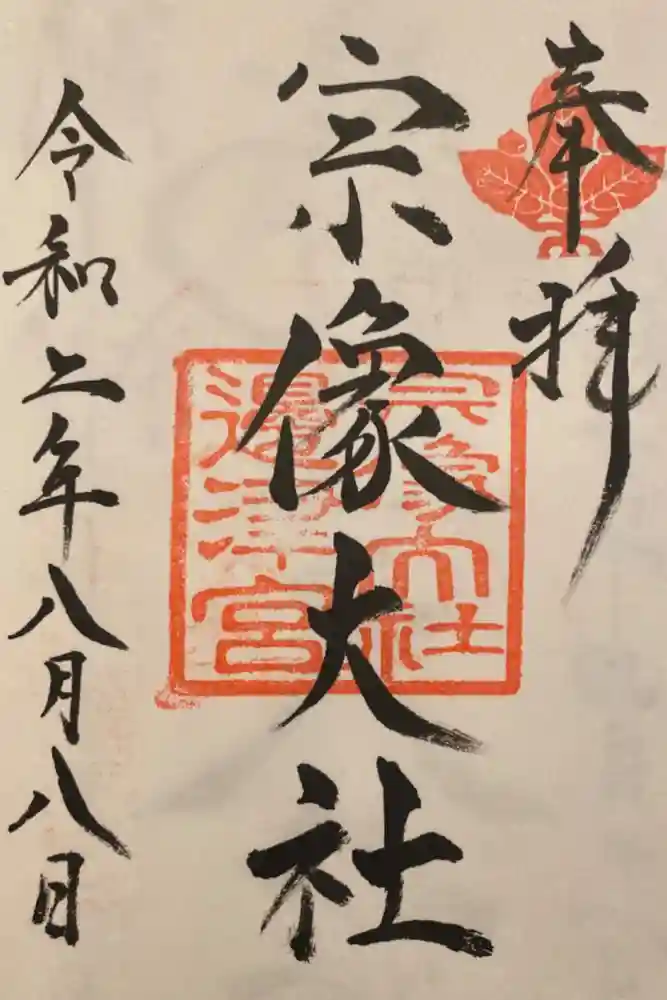 奉拝
宗像大社
宗像大社
邊津宮
令和二年八月八日